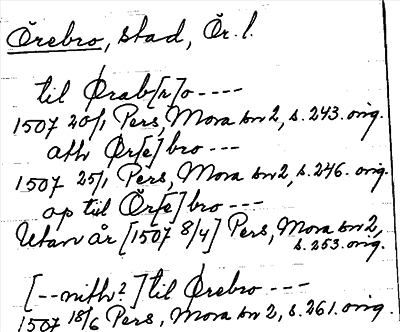 Örebro, stad, Ör. l.
til Ørab[r]o ----
1507 20/1 Pers, Mora bn 2, s. 243. orig.
ath Ør[e]bro ---
1507 25/1 Pers, Mora bn 2, s. 246. orig.
op til Ör[e]bro ---
Utan år [1507 8/4] Pers, Mora bn 2,
s. 253. orig.
[--nith?] til Ørebro ---
1507 18/6 Pers, Mora bn 2, s. 261. orig.